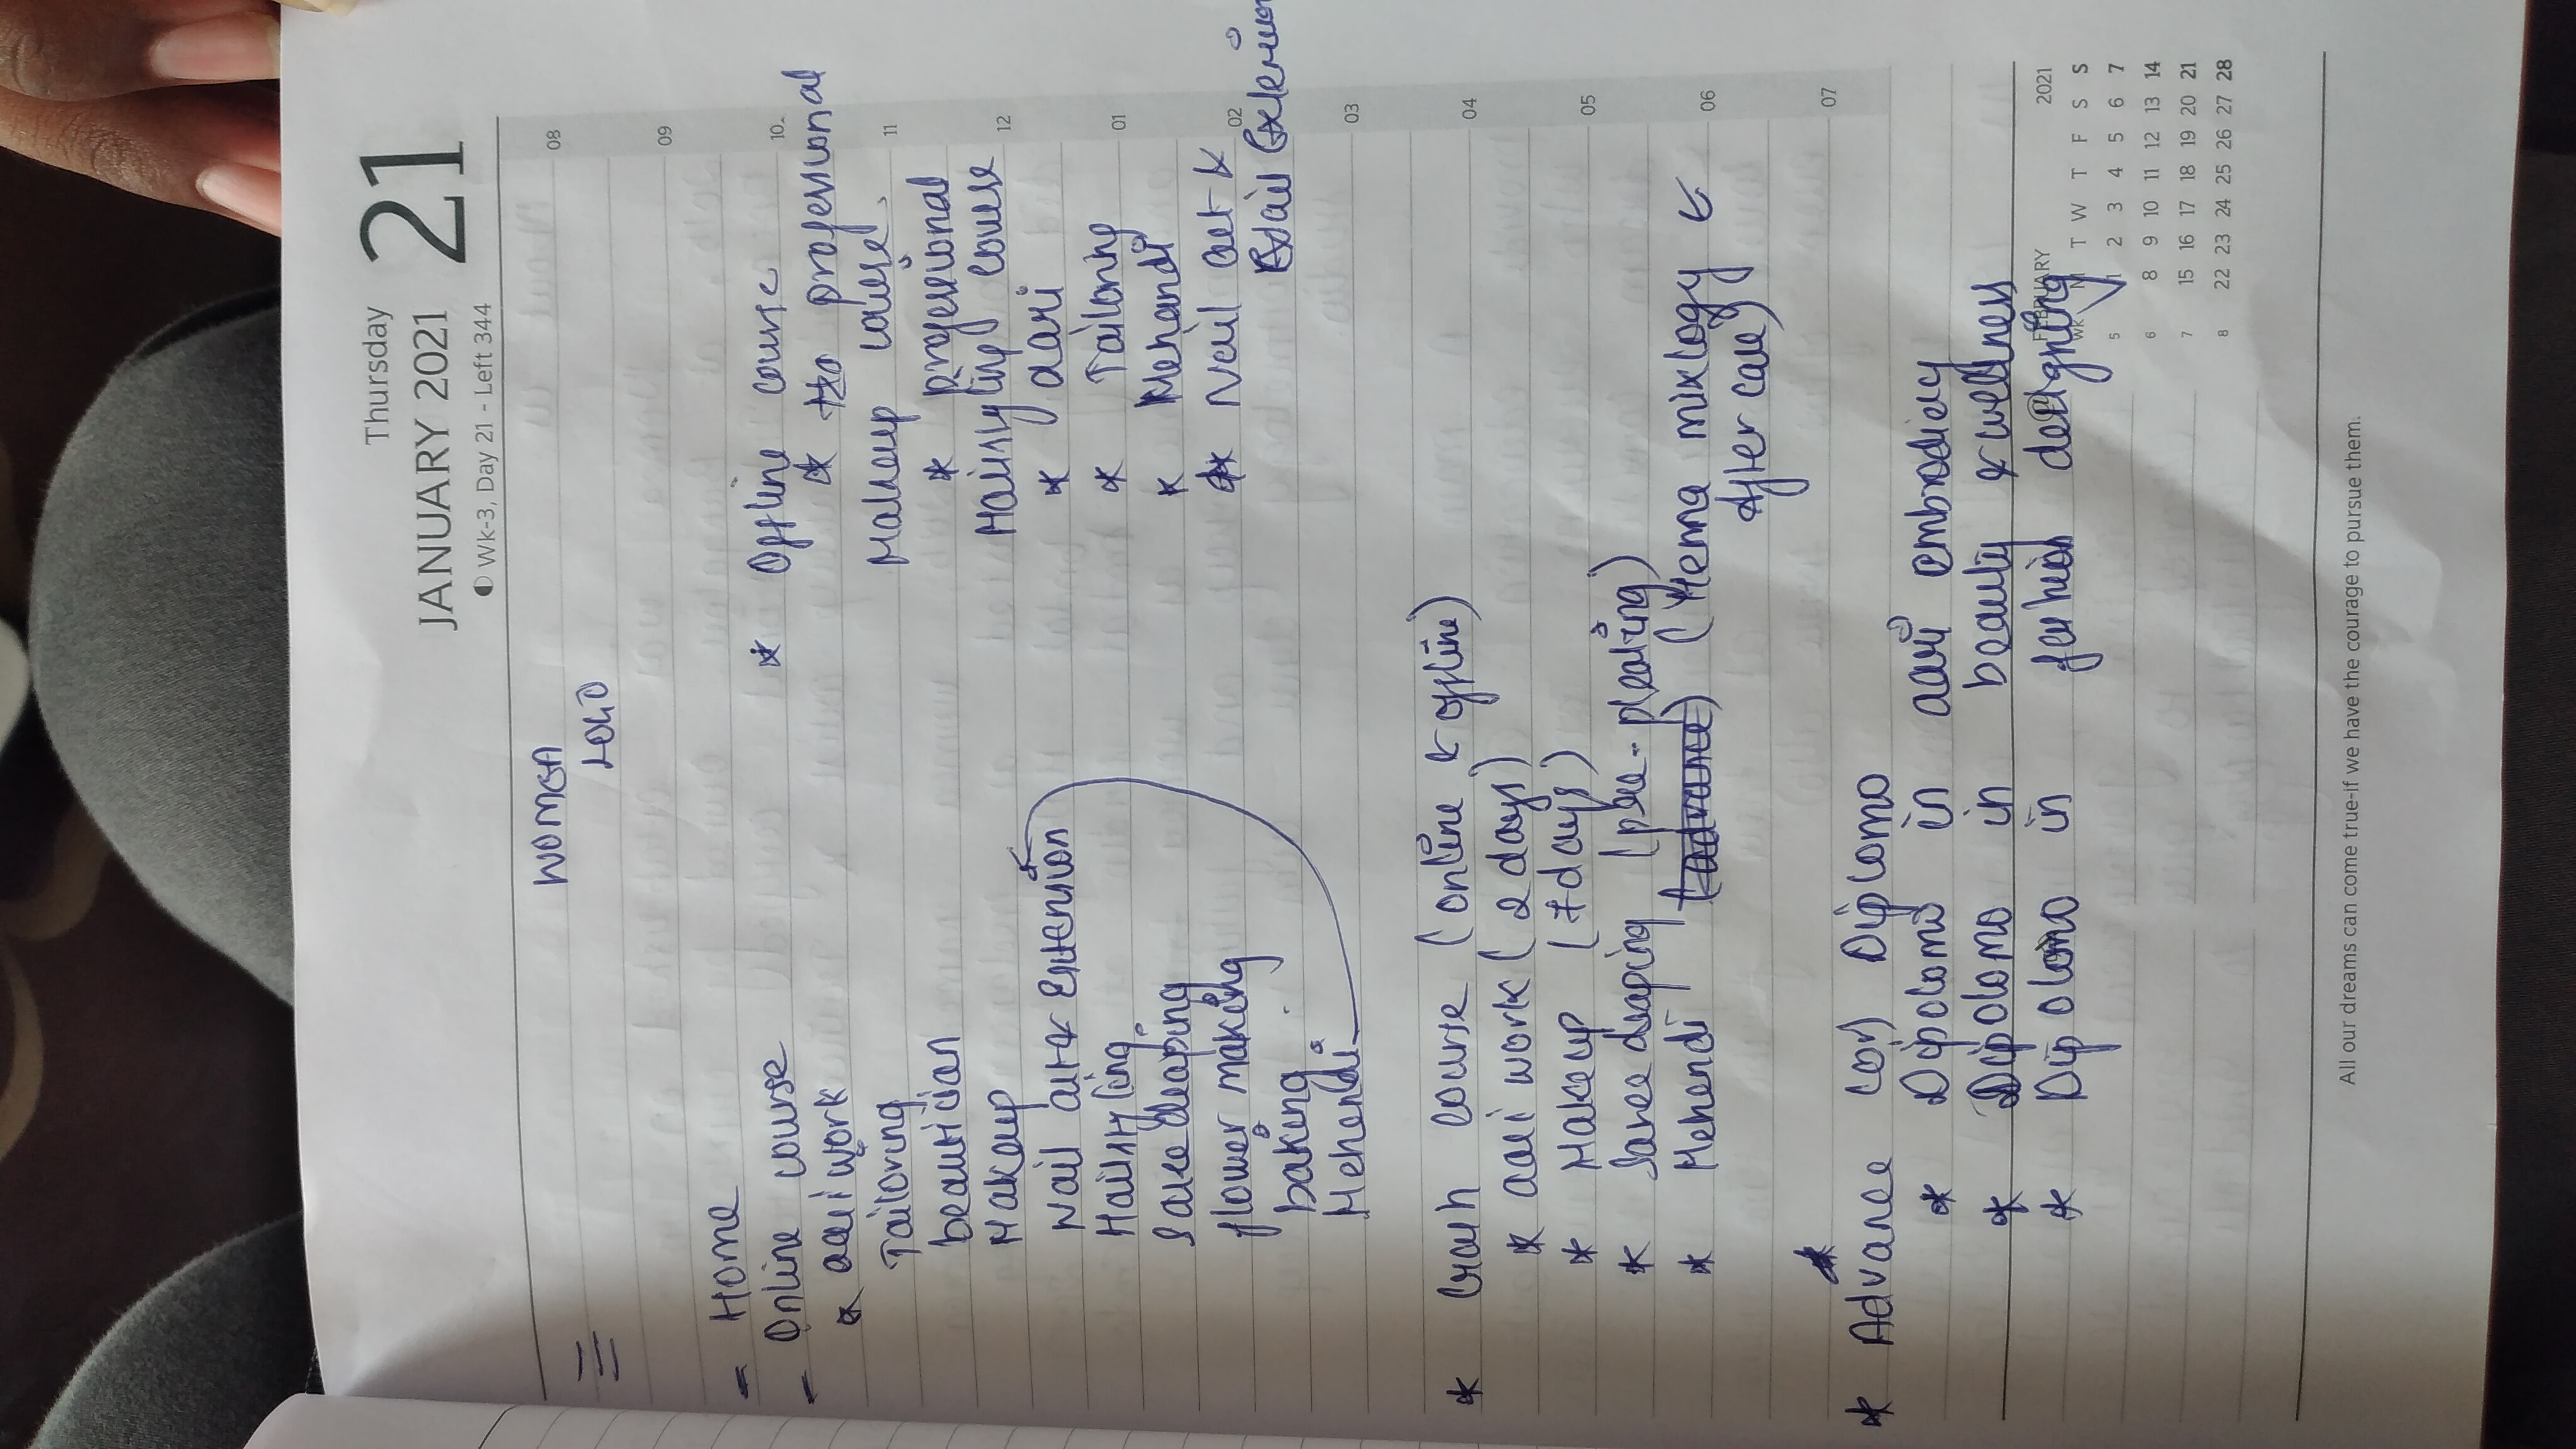 Thursday
JANUARY 2021 21
Wk-3, Day 21 - Left 344
WOMEN
LOGO
08
09
10
11
12
01
02
03
04
05
06
07
- Home
- Online course
* aari work
Tailoring
beautician
Makeup
Nail art & Extention
Hairstyling
Saree draping
flower making
baking
Mehendi
* Offline course
* professional
Makeup course
* professional
Hairstyling course
* aari
* Tailoring
* Mehandi
* Nail art &
Hair Extention
* Crash course (online & offline)
* aari work (2 days)
* Makeup (7 days)
* Saree draping (pre-pleating)
* Mehendi (Henna mixology &
After care)
* Advance Diplomo
* Diplomo in aari embrodiery
* Diplomo in beauty & wellness
* Diplomo in fashion designing
FEBRUARY 2021
Wk M T W T F S S
5 1 2 3 4 5 6 7
6 8 9 10 11 12 13 14
7 15 16 17 18 19 20 21
8 22 23 24 25 26 27 28
All our dreams can come true-if we have the courage to pursue them.